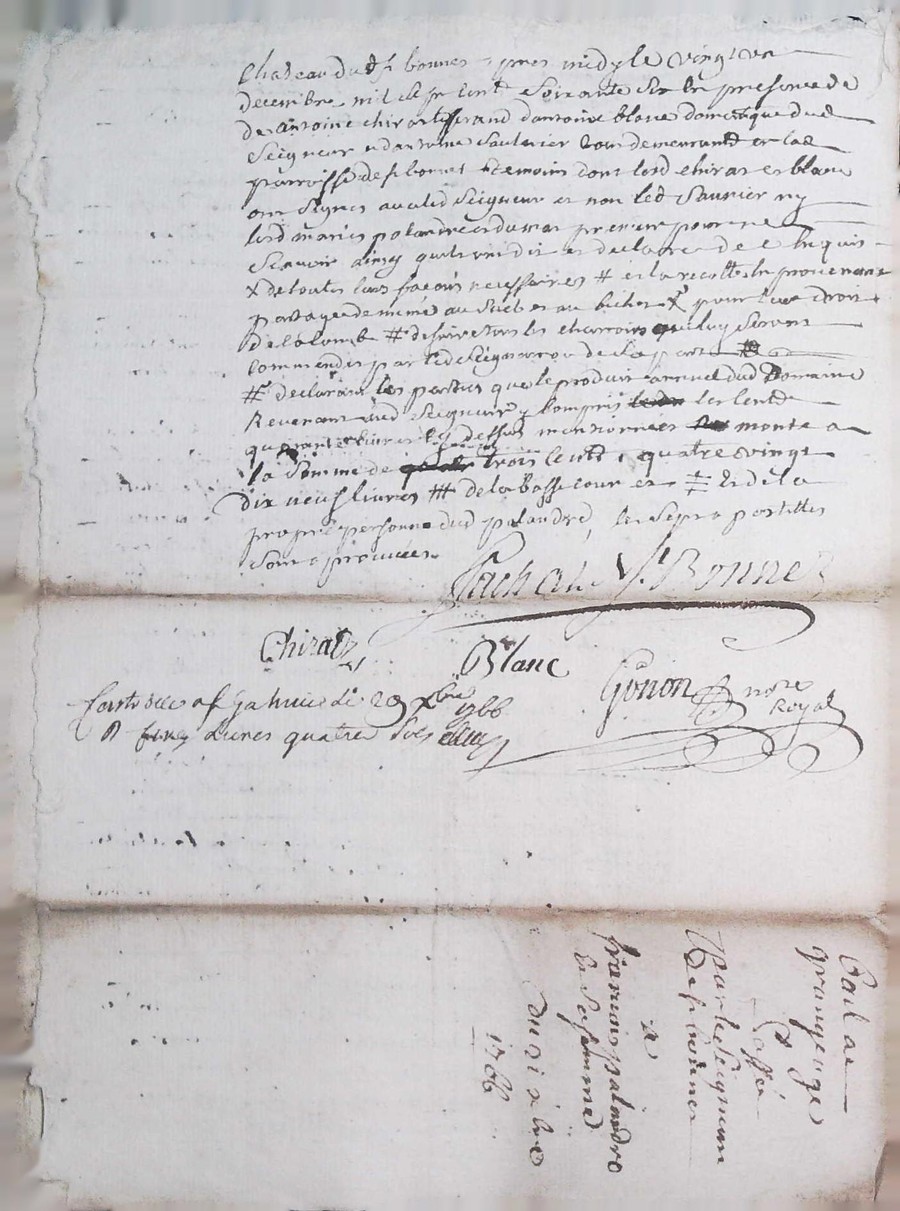 Chateau dud st bonnet apres midy le vingt un
decembre mil sept cent Soixante Six en presence de
de antoine chirat d'antoine blanc domestique dud
Seigneur et antoine Saulnier tous demeurant en lad
parroisse de st bonnet temoins dont lesd chirat et blanc
ont Signés avec led Seigneur et non led Saunier ny
lesd mariés palandre pour ne
Scavoir ainsy quils ont dit et declaré de ce Enquis
X de toutes leurs façons necessaires # et la recolte En provenant
partagée de meme au Suel et au bichet X pour leur droit
De colombe # de faire tous les charrois qui luy Seront
commendés par led Seigneur ou de Sa part
# declarant les parties que le produit annuel dud Domaine
Revenant aud Seigneur y Compris les cent
quarante livres cy dessus mentionnées monte a
la Somme de trois cent quatre vingt
dix neuf livres ## de la basse cour et et de la
propre personne dud palandre, les Sept apostilles
Sont aprouvées
St Bonnet
Chirat
Blanc
Gonon nore
Royal
Controllé a St galmier le 29 xbre 1766
R livres quatre Sols
Bail a
grangeage
passé
Par le Seigneur
De st bonnet
a
francois palandre
et Sa femme
du 21 xbre
1766